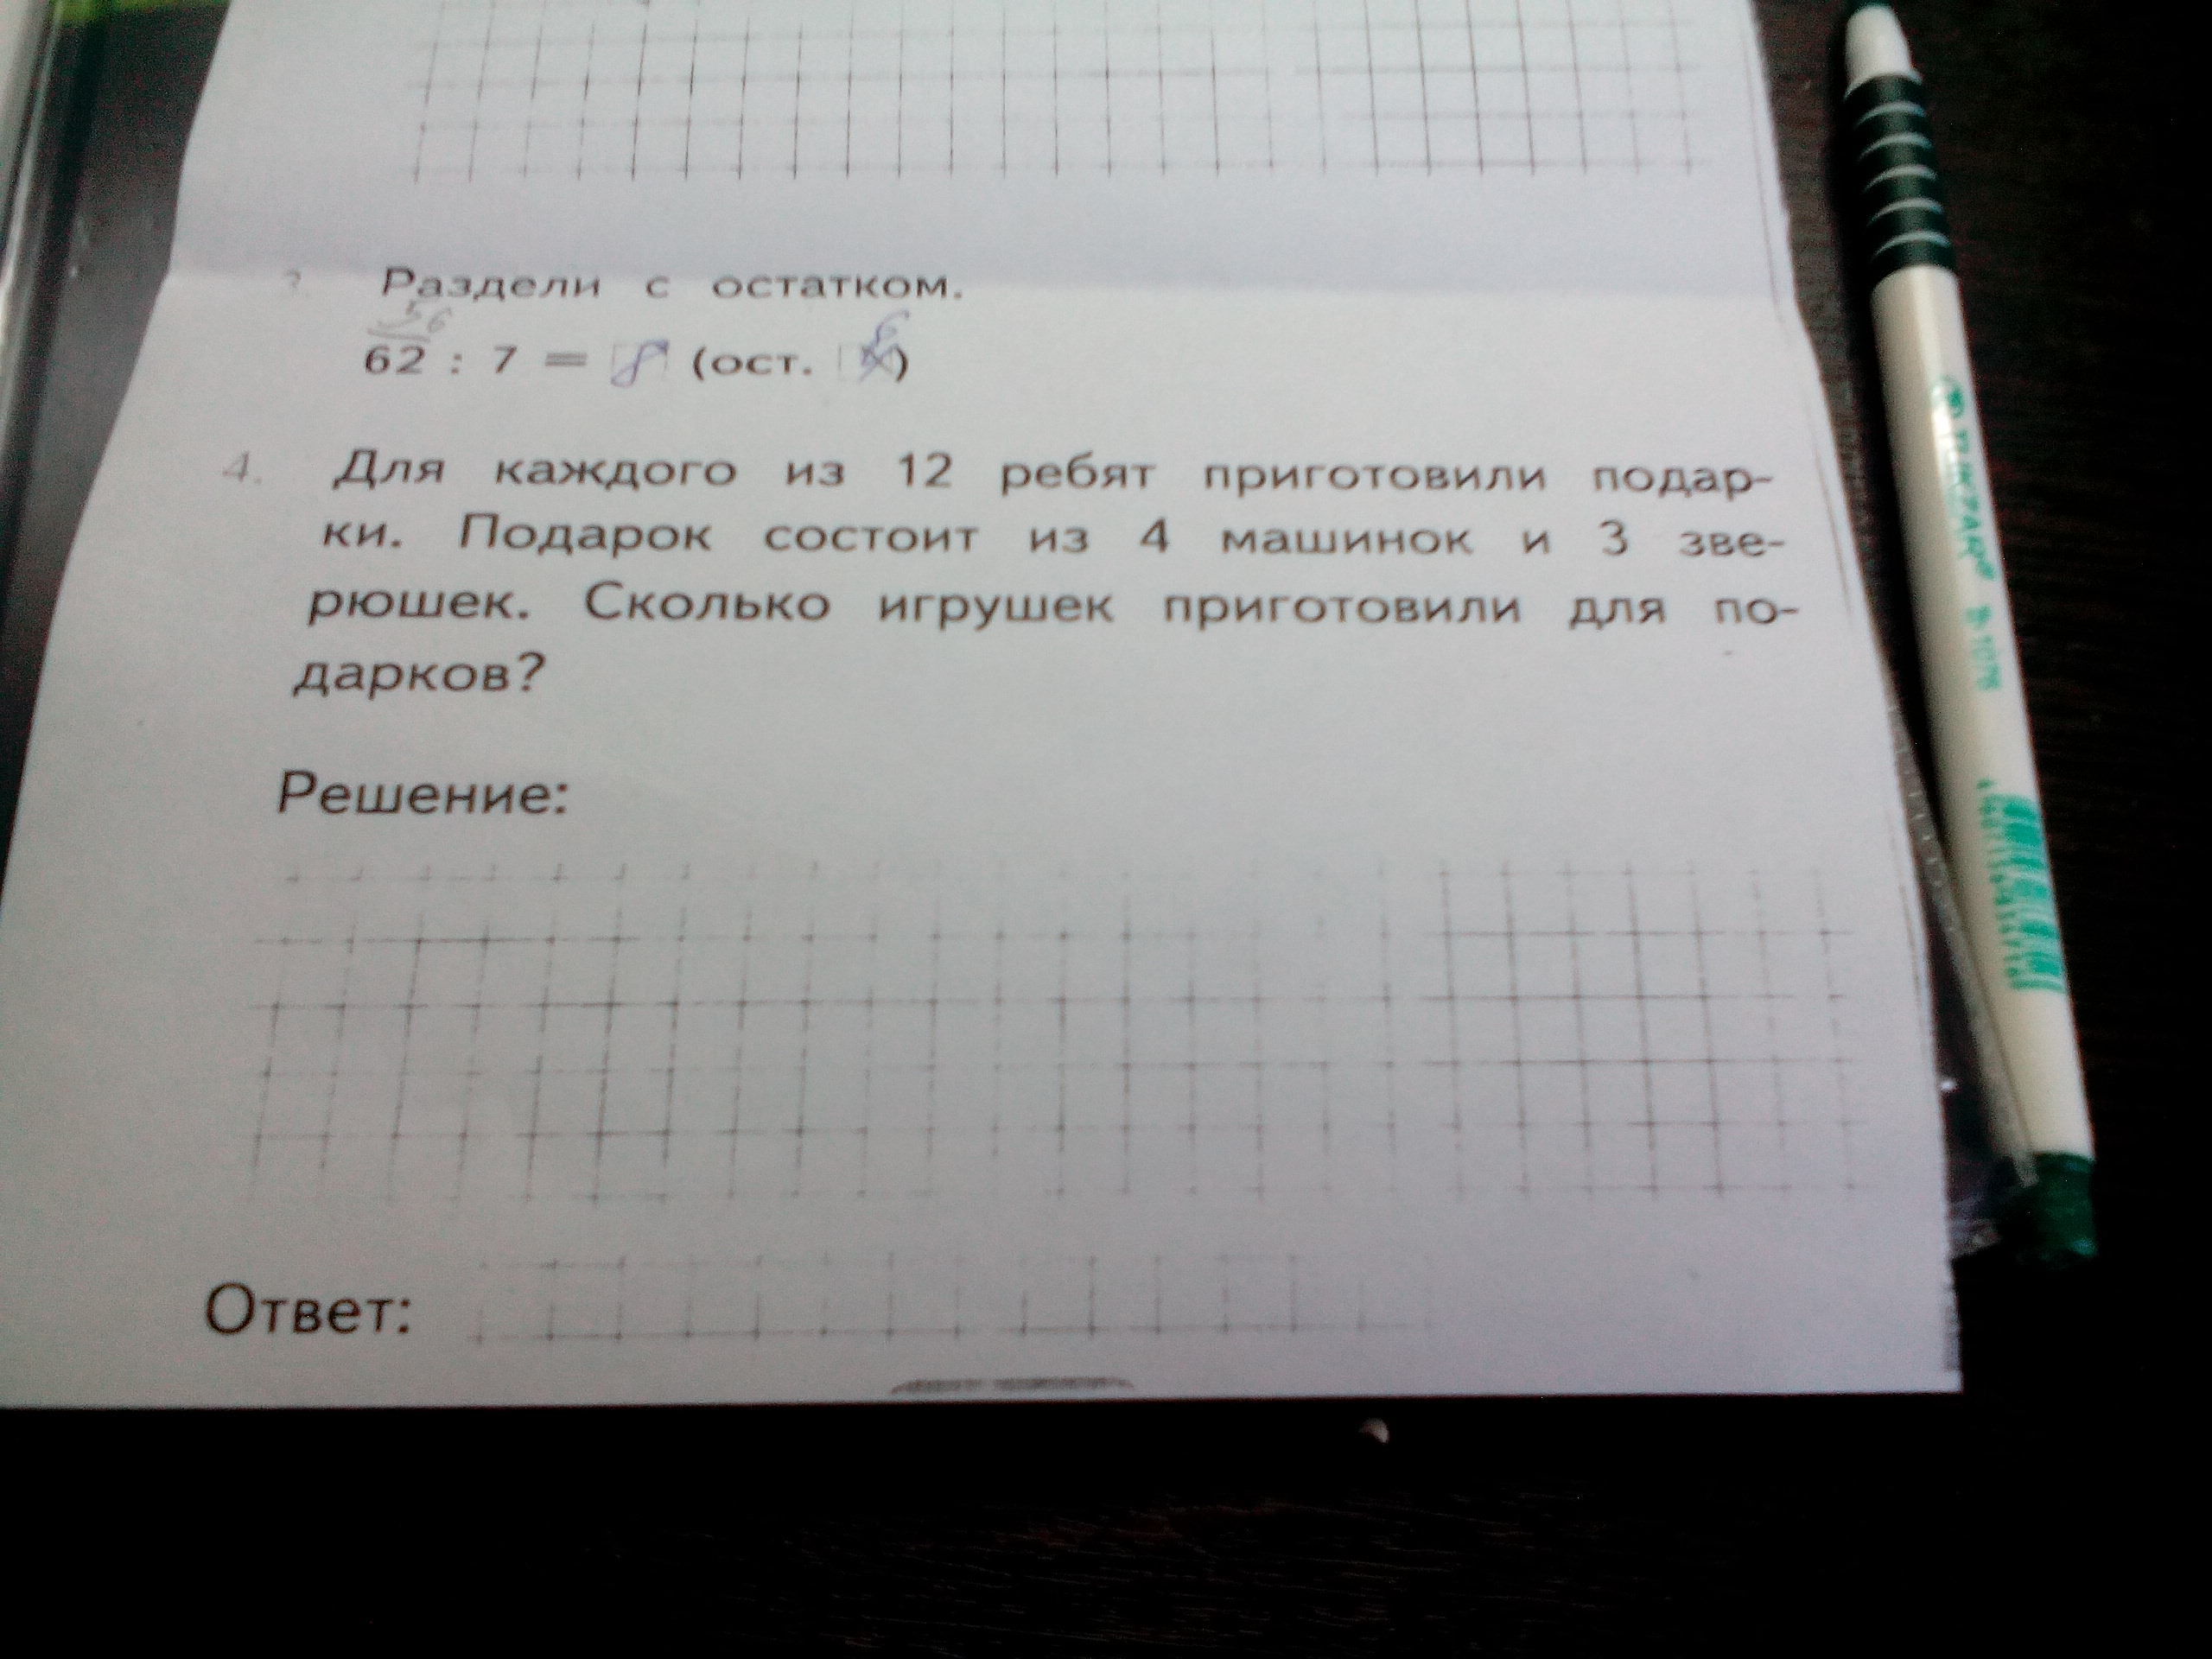 Раздели с остатком.
56
62 : 7 = 8 (ост. 6)
4. Для каждого из 12 ребят приготовили подар-
ки. Подарок состоит из 4 машинок и 3 зве-
рюшек. Сколько игрушек приготовили для по-
дарков?
Решение:
Ответ: